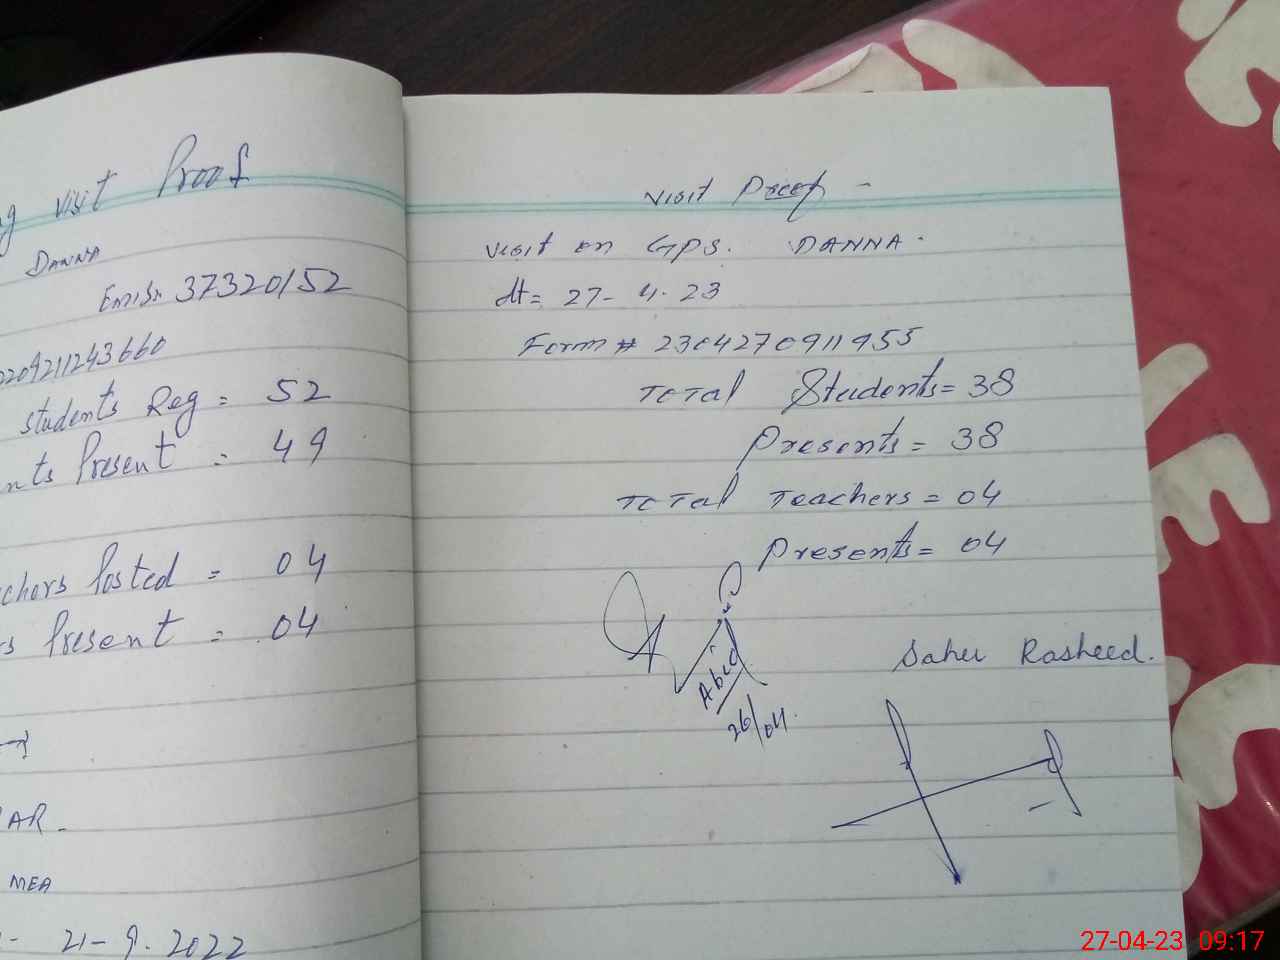 visit Proof
DANNA
Emis# 37320152
2209211243660
students Reg = 52
nts Present = 49
chers Posted = 04
rs Present = 04
AR-
MEA
21-9.2022
Visit Proof -
Visit on GPS. DANNA.
dt= 27-4.23
Form # 2304270911955
Total Students= 38
Presents= 38
Total Teachers= 04
Presents= 04
Abid
26/04.
Saher Rasheed.
27-04-23 09:17